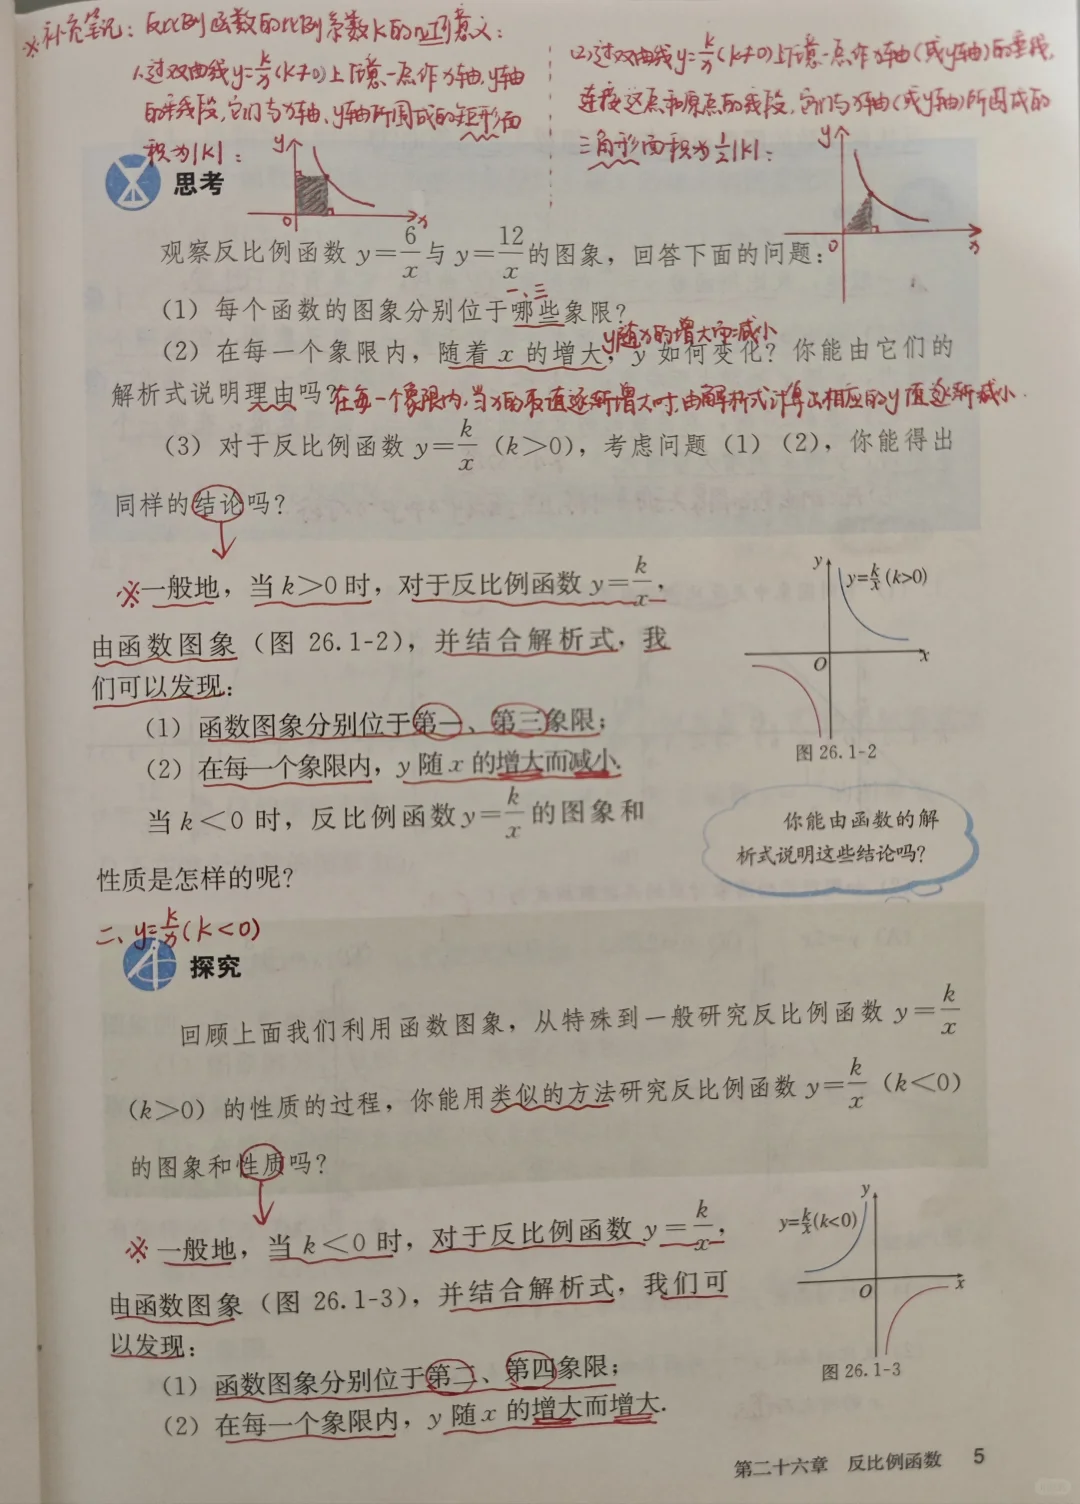 ※补充笔记：反比例函数的比例系数k的几何意义：
1.过双曲线y=k/x(k≠0)上任意一点作x轴、y轴
的垂线段，它们与x轴、y轴所围成的矩形面
积为|k|：
(2)过双曲线y=k/x(k≠0)上任意一点作x轴(或y轴)的垂线，
连接这点和原点的线段，它们与x轴(或y轴)所围成的
三角形面积为1/2|k|：
y
O
x
y
O
x
思考
观察反比例函数 y=6/x与 y=12/x的图象，回答下面的问题：
一、三
(1) 每个函数的图象分别位于哪些象限？
y随x的增大而减小
(2) 在每一个象限内，随着 x 的增大，y 如何变化？你能由它们的
解析式说明理由吗？
在每一个象限内，当x的取值逐渐增大时，由解析式计算出相应的y值逐渐减小.
(3) 对于反比例函数 y=k/x (k>0)，考虑问题 (1) (2)，你能得出
同样的结论吗？
※一般地，当 k>0 时，对于反比例函数 y=k/x，
由函数图象 (图 26.1-2)，并结合解析式，我
们可以发现：
(1) 函数图象分别位于第一、第三象限；
(2) 在每一个象限内，y 随 x 的增大而减小.
y
y=k/x(k>0)
O
x
图 26.1-2
当 k<0 时，反比例函数 y=k/x 的图象和
性质是怎样的呢？
你能由函数的解
析式说明这些结论吗？
二、y=k/x(k<0)
探究
回顾上面我们利用函数图象，从特殊到一般研究反比例函数 y=k/x
(k>0) 的性质的过程，你能用类似的方法研究反比例函数 y=k/x (k<0)
的图象和性质吗？
※ 一般地，当 k<0 时，对于反比例函数 y=k/x，
由函数图象 (图 26.1-3)，并结合解析式，我们可
以发现：
(1) 函数图象分别位于第二、第四象限；
(2) 在每一个象限内，y 随 x 的增大而增大.
y
y=k/x(k<0)
O
x
图 26.1-3
第二十六章 反比例函数 5